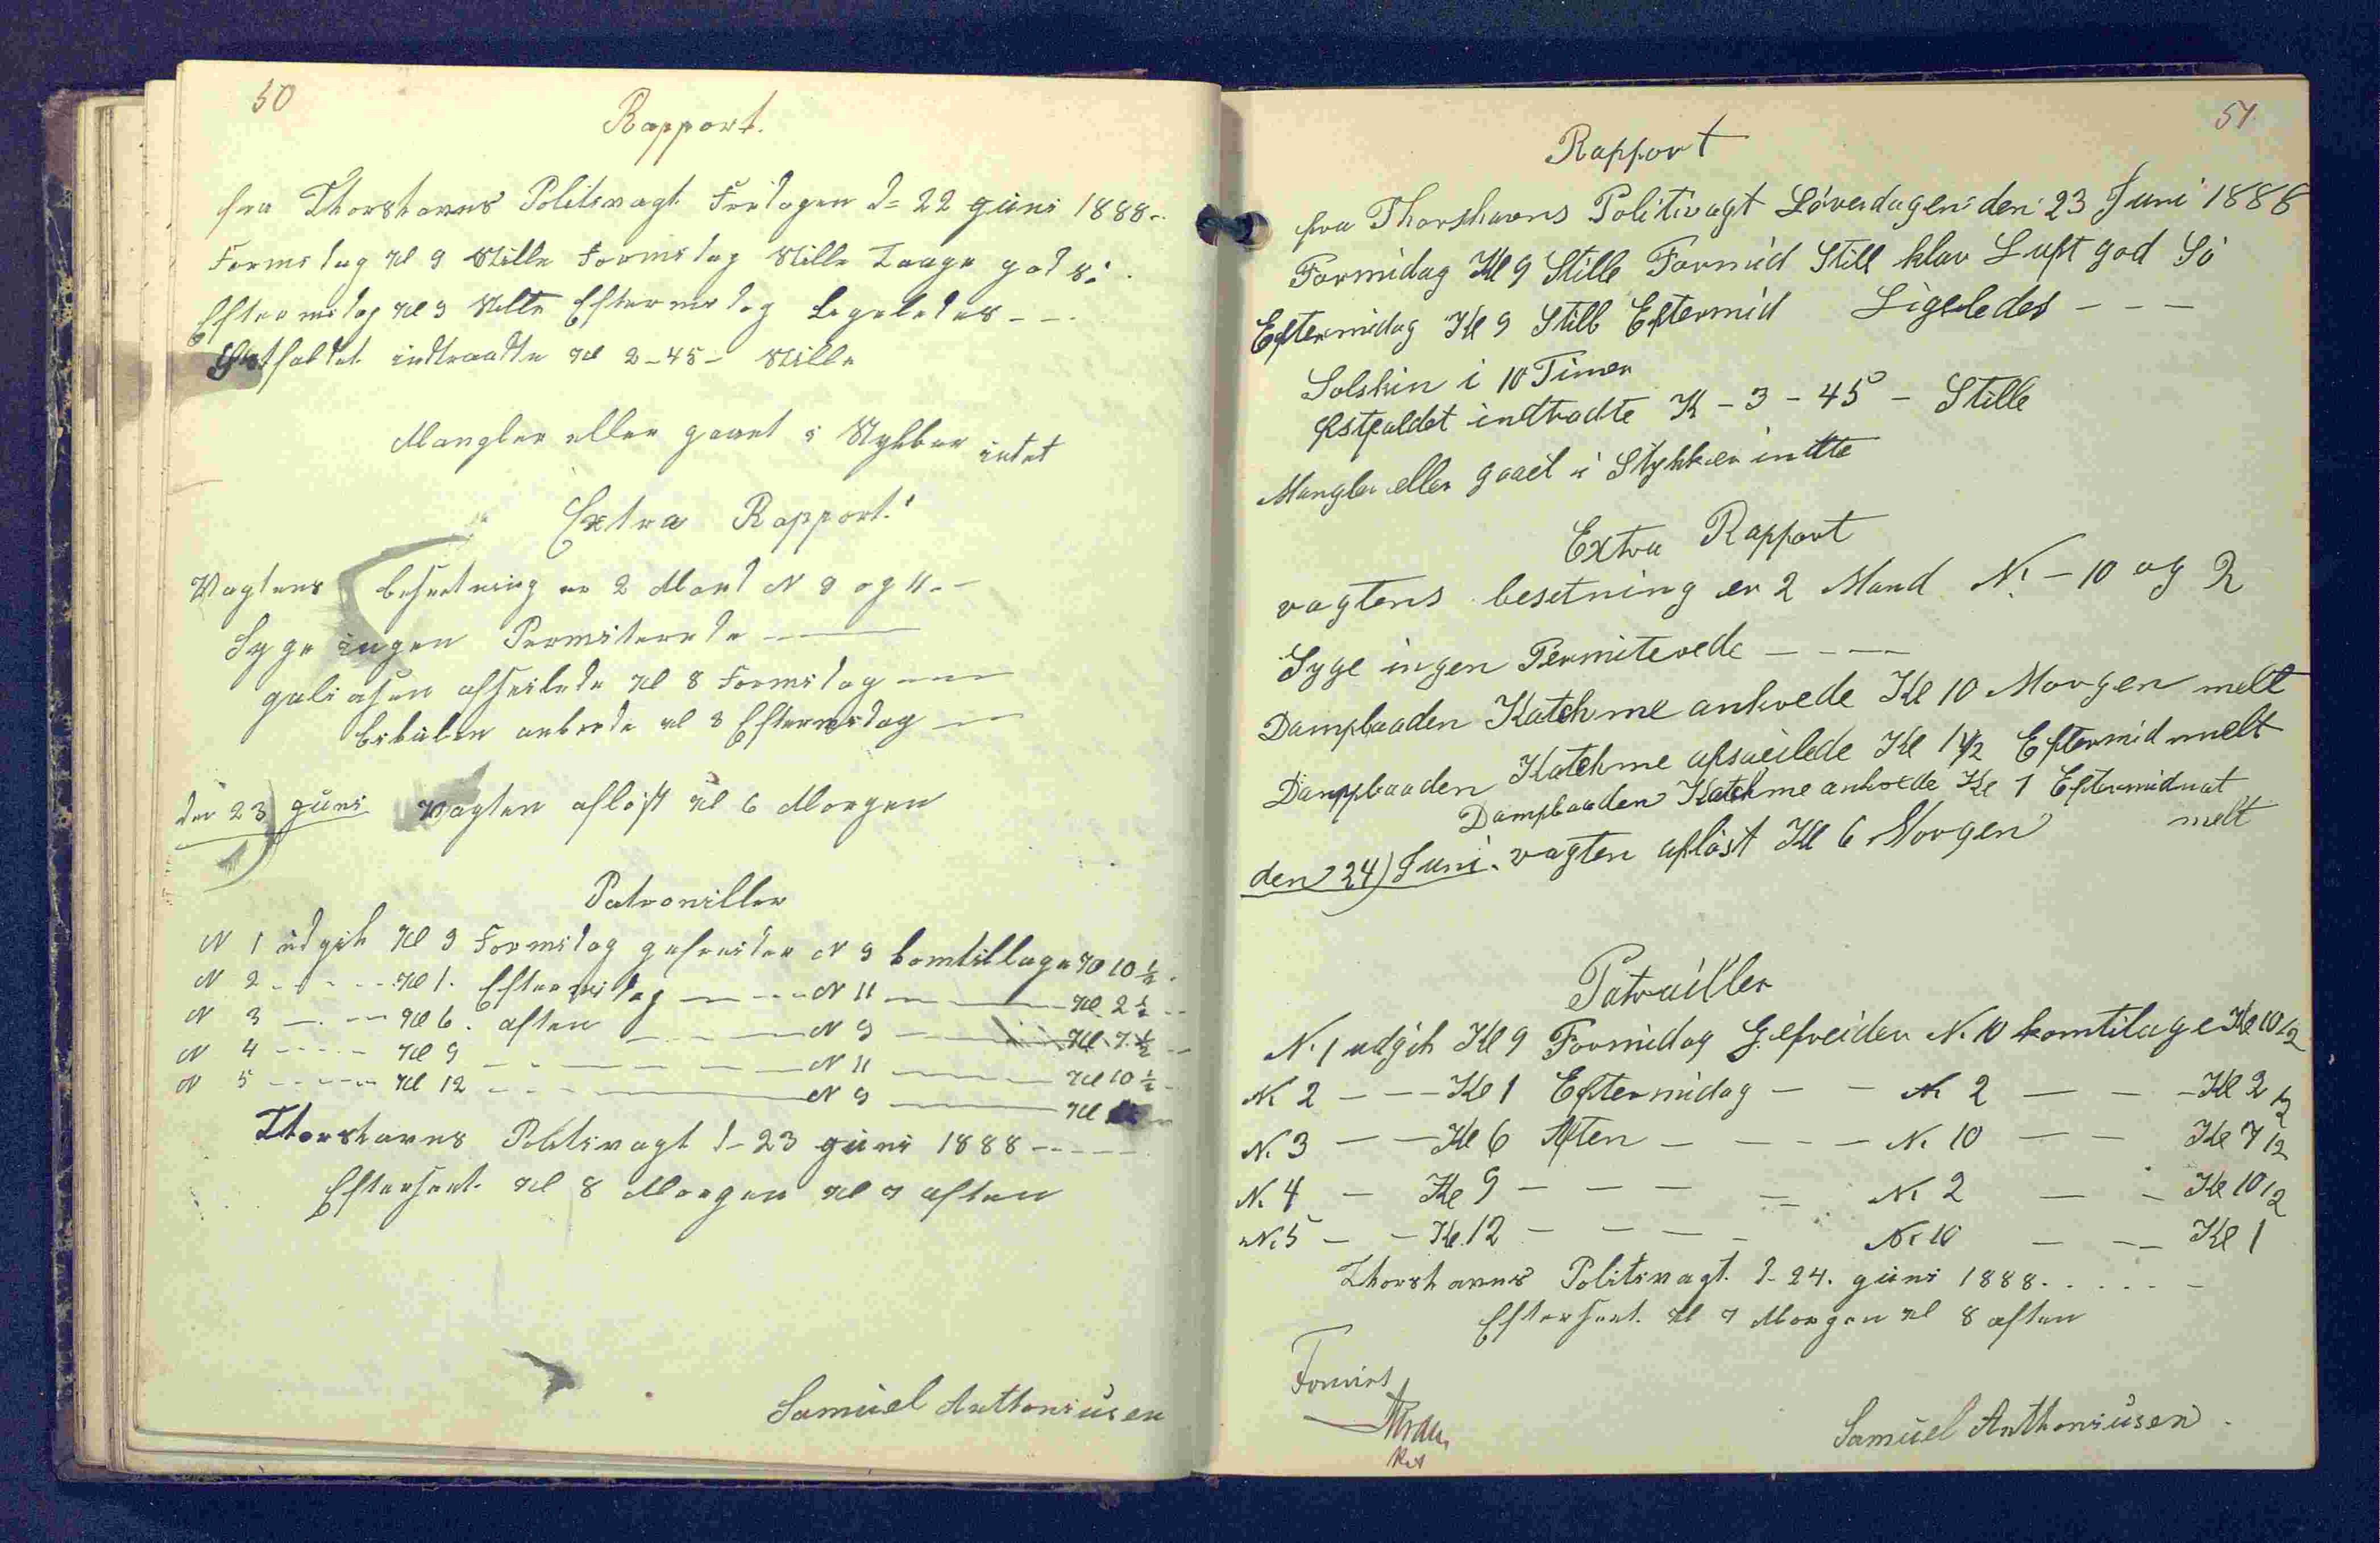 50
Rapport.
fra Thorshavns Politivagt Fredagen d= 22 Juni 1888-.
Formidag Kl 9 Stille Formidag Stille Taage god Sö.
Eftermidag Kl 9 Stille Eftermidag Ligeledes - - -
Østfaldet indtraadte Kl 2-45- Stille
Mangler eller gaaet i Stykker intet
Extra Rapport.
Vagtens besætning er 2 Mand N 9 og 11. -
Syge ingen Permiterede ———
galiasen afseilede Kl 8 Formidag ——
ankrede Kl 8 Eftermidag ——
den 23) Juni Vagten aflöst Kl 6 Morgen
Patrouiller
N 1 udgik Kl 9 Formidag gefreider N 9 komtillage Kl 10 ½.
N 2 - - - - Kl 1. Eftermidag — - - N 11 — —— Kl 2 ½ - -
N 3 — - — Kl 6. aften — - — N 9 — —— Kl 7 ½ - -
N 4 - - - - - Kl 9 - - — — — N 11 —— —— Kl 10 ½ -
N 5 - - - - Kl 12 - - - ——— N 9 ——— Kl
Thorshavns Politivagt d- 23 Juni 1888 - - - - -
Efterseet Kl 8 Morgen Kl 7 aften
Samuel Anthoniusen
51.
Rapport
fra Thorshavns Politivagt Löverdagen den 23 Juni 1888
Formidag Kl 9 Stille Formid Still klar Luft god Sö
Eftermidag Kl 9 Still Eftermid Ligeledes - - -
Solskin i 10 Timer
Østfaldet indtradte K - 3 - 45 - Stille
Mangler eller gaaet i Stykker intte
Extra Rapport
vagtens besetning er 2 Mand N. - 10 og 2
Syge ingen Permiterede - - - -
Dampbaaden Katchme ankrede Kl 10 Morgen melt
Dampbaaden Katchme afsaeilede Kl 1 ½ Eftermid melt
Dampbaaden Katchme ankrede Kl 1 Eftermidnat
melt
den 24) Juni. vagten aflöst Kl 6 Morgen
Patrailler
N. 1 udgik Kl 9 Formidag Gefreider N. 10 komtilage Kl 10 ½
N. 2 - - - Kl 1 Eftermidag - - N. 2 — - - Kl 2 ½
N. 3 - - Kl 6 Aften - - - - N. 10 - - Kl 7 ½
N. 4 - Kl 9 - - - - N. 2 — - Kl 10 ½
N. 5 - - Kl. 12 - - - - N. 10 — — Kl 1
Thorshavns Politivagt. d- 24. Juni 1888. . . . . -
Efterseet. Kl 7 Morgen Kl 8 aften
Samuel Anthoniusen.